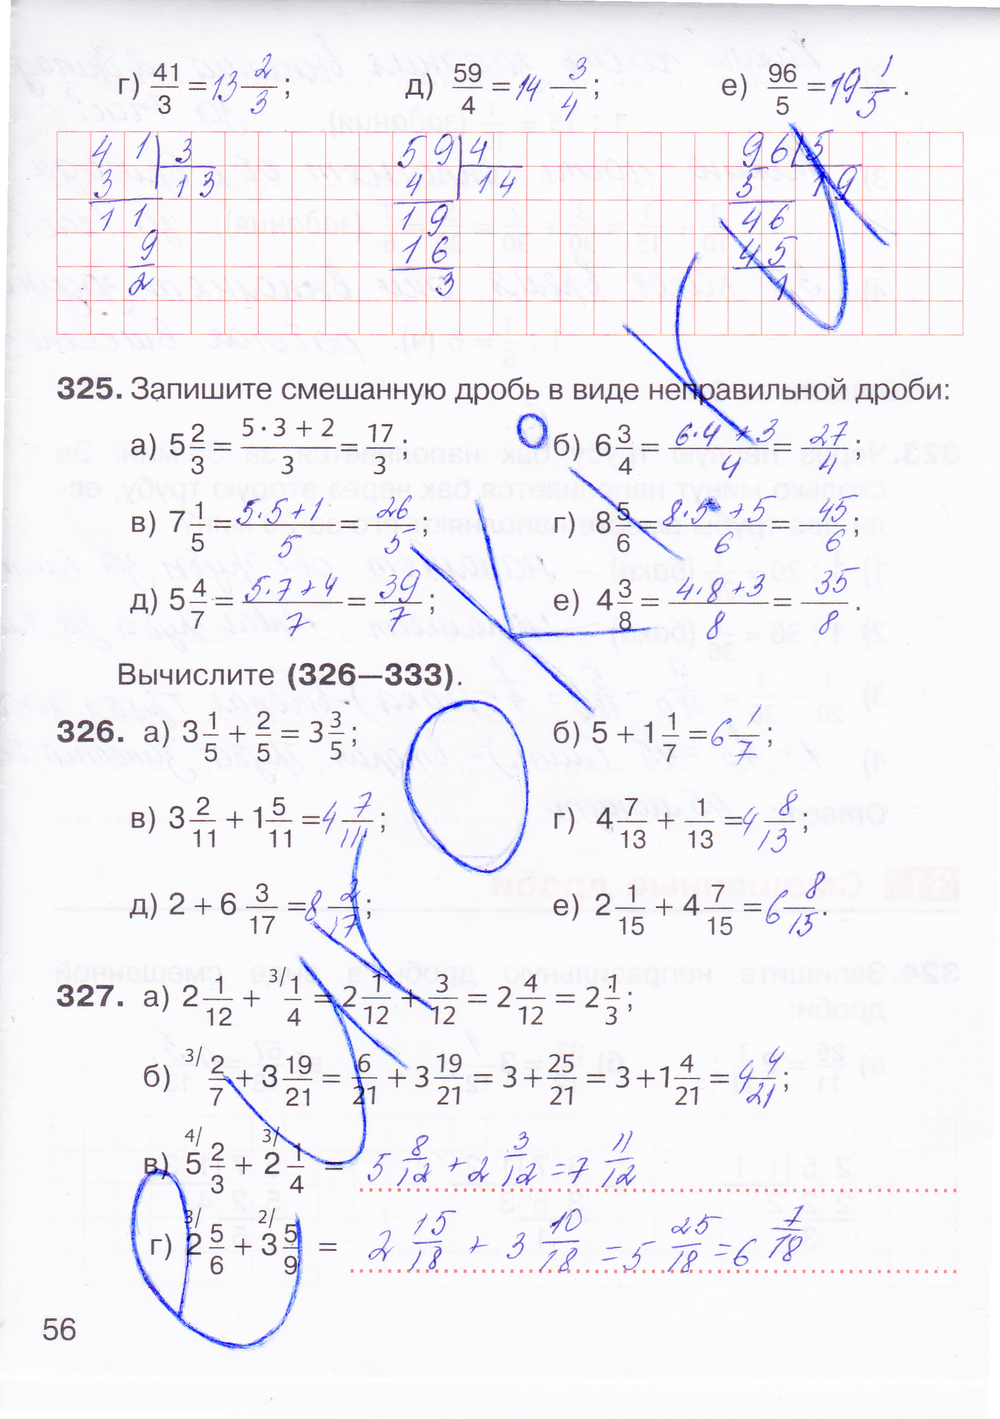 г) 41/3 = 13 2/3; д) 59/4 = 14 3/4; е) 96/5 = 19 1/5.
4 1 | 3 5 9 | 4 9 6 | 5
3 1 3 4 1 4 5 1 9
1 1 1 9 4 6
9 1 6 4 5
2 3 1
325. Запишите смешанную дробь в виде неправильной дроби:
а) 5 2/3 = (5 · 3 + 2)/3 = 17/3; б) 6 3/4 = (6·4 + 3)/4 = 27/4;
в) 7 1/5 = (5·5+1)/5 = 26/5; г) 8 5/6 = (8·5 + 5)/6 = 45/6;
д) 5 4/7 = (5·7+4)/7 = 39/7; е) 4 3/8 = (4·8+3)/8 = 35/8.
Вычислите (326—333).
326. а) 3 1/5 + 2/5 = 3 3/5; б) 5 + 1 1/7 = 6 1/7;
в) 3 2/11 + 1 5/11 = 4 7/11; г) 4 7/13 + 1/13 = 4 8/13;
д) 2 + 6 3/17 = 8 2/17; е) 2 1/15 + 4 7/15 = 6 8/15.
327. а) 2 1/12 + 3/ 1/4 = 2 1/12 + 3/12 = 2 4/12 = 2 1/3;
б) 3/ 2/7 + 3 19/21 = 6/21 + 3 19/21 = 3 + 25/21 = 3 + 1 4/21 = 4 4/21;
в) 4/ 5 2/3 + 3/ 2 1/4 = 5 8/12 + 2 3/12 = 7 11/12
г) 3/ 2 5/6 + 2/ 3 5/9 = 2 15/18 + 3 10/18 = 5 25/18 = 6 7/18
56